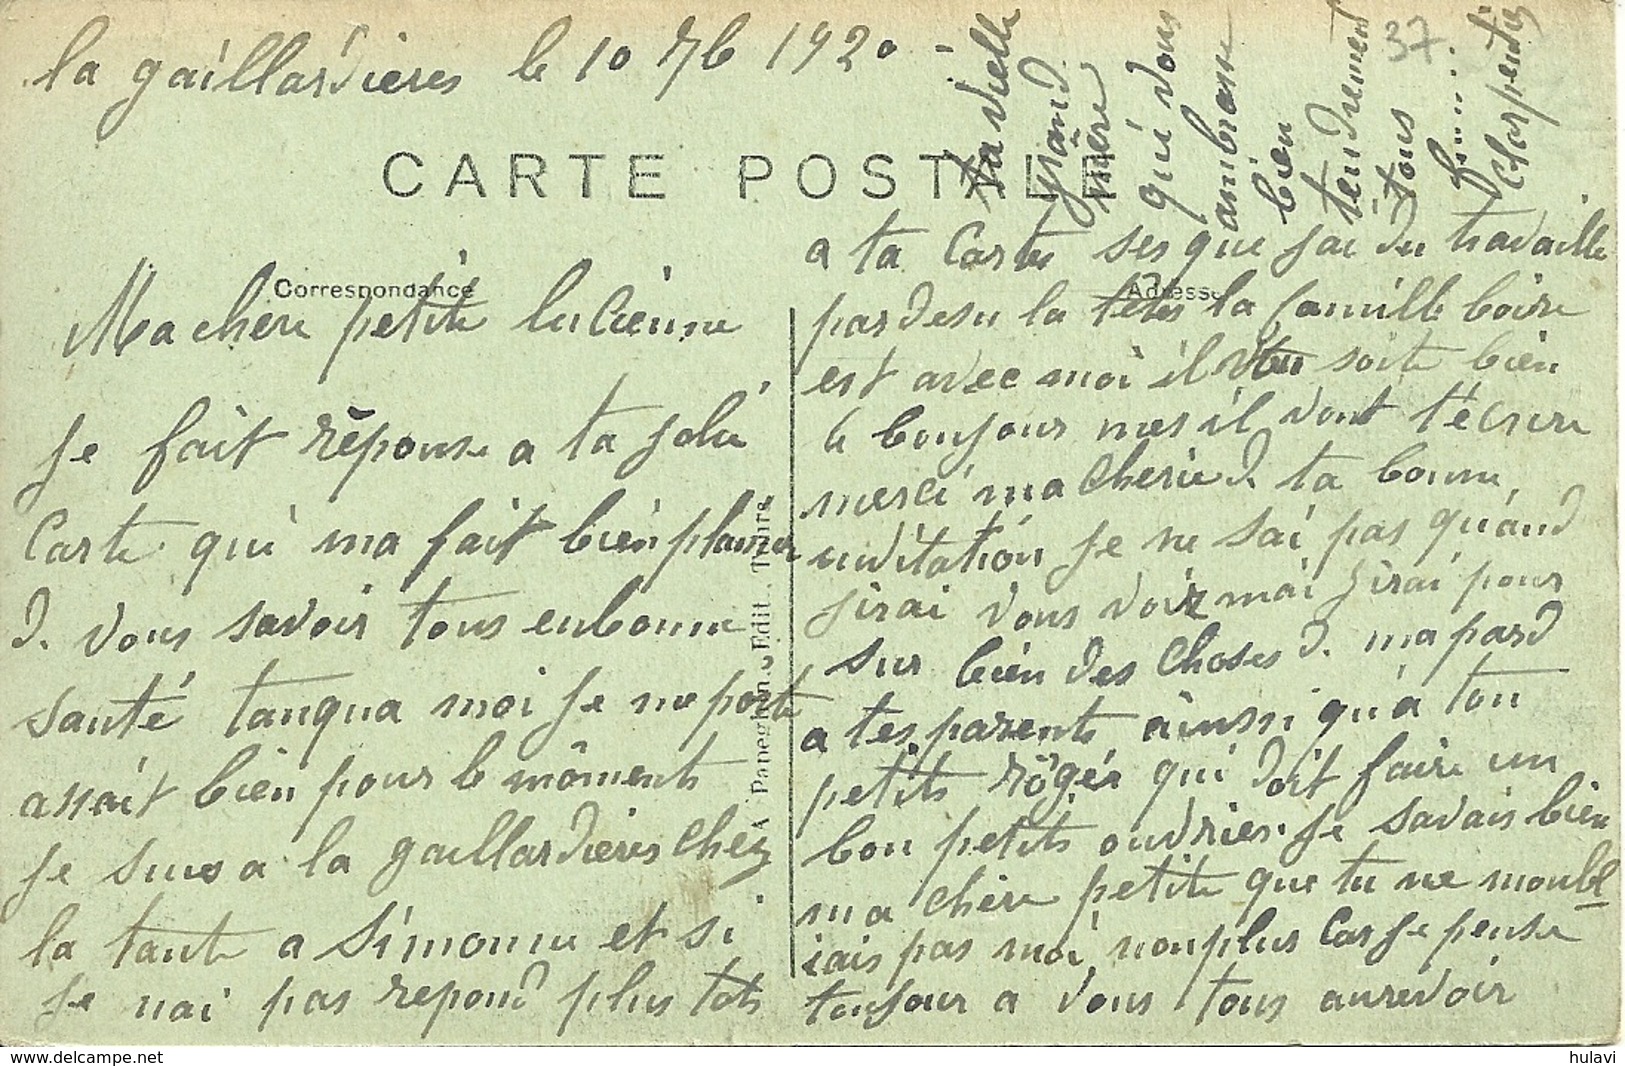 la gaillardieres le 10 7b 1920
37
CARTE POSTALE
Correspondance
Adresse
A Papeghin, Edit. Tours
Ma chere petite lucienne
je fait réponse a ta jolie
Carte qui ma fait bien plaisir
d. vous savoir tous enbonne
santé tanqua moi je me porte
assait bien pour le môments
je suis a la gaillardieres chez
la tante a Simonne et si
je nai pas repond plus tots
a ta Carte ses que jai du travaille
pardesu la tetes la famille boire
est avec moi il soite bien
le bonjour mes il vont t'écrire
merci ma cherie d. ta bonne
invitation je ne sai pas quand
jirai vous voir mai jirai pour
sur bien des choses d. ma pard
a tes parents ainssi qu'a ton
petits rôgér qui doit faire un
bon petits ouvrier. je savais bien
ma chère petite que tu ne moubl
iais pas moi non plus Car je pense
toujour a vous tous aurevoir
ta vielle
grand
mère
qui vous
ambrasse
bien
tendrement
tous
Charpentier
hulavi
www.delcampe.net